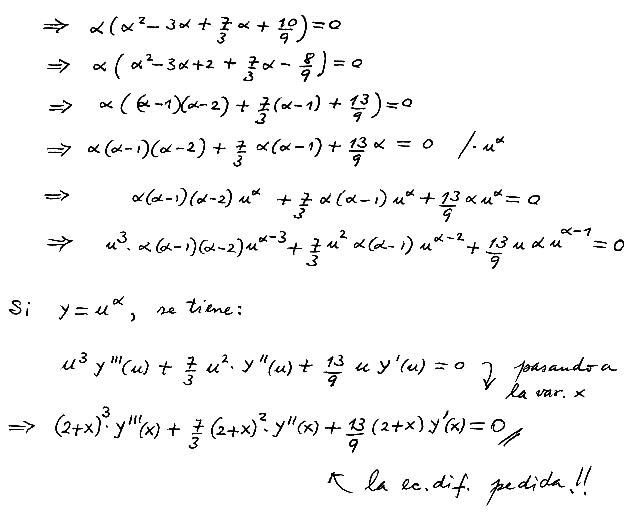 ⇒ α(α² - 3α + 7/3 α + 10/9) = 0
⇒ α(α² - 3α + 2 + 7/3 α - 8/9) = 0
⇒ α((α-1)(α-2) + 7/3(α-1) + 13/9) = 0
⇒ α(α-1)(α-2) + 7/3 α(α-1) + 13/9 α = 0 /· u^α
⇒ α(α-1)(α-2) u^α + 7/3 α(α-1) u^α + 13/9 α u^α = 0
⇒ u³· α(α-1)(α-2) u^(α-3) + 7/3 u² α(α-1) u^(α-2) + 13/9 u α u^(α-1) = 0
Si y = u^α, se tiene:
u³ y'''(u) + 7/3 u²· y''(u) + 13/9 u y'(u) = 0 pasando a
la var. x
⇒ (2+x)³· y'''(x) + 7/3 (2+x)²· y''(x) + 13/9 (2+x) y'(x) = 0 //
↖ la ec. dif. pedida!!